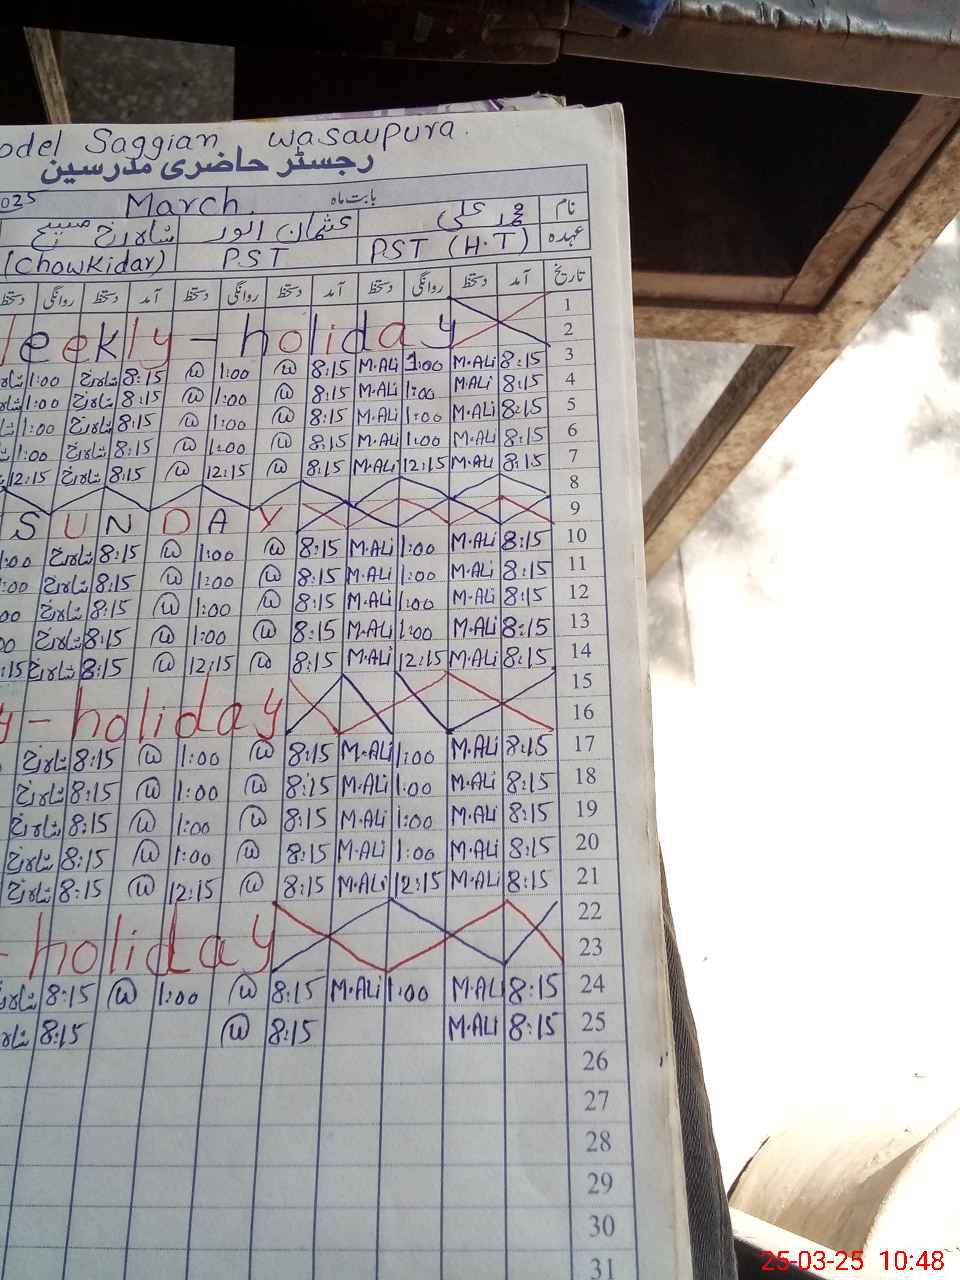 odel Saggian wasaupura.
رجسٹر حاضری مدرسین
2025 March بابت ماہ
نام محمد علی عثمان انور شاہ رخ صبیح
عہدہ PST (H.T) P.S.T (Chowkidar)
تاریخ آمد دستخط روانگی دستخط آمد دستخط روانگی دستخط آمد دستخط روانگی دستخط
1
leekly - holiday 2
1:00 شاہ رخ 8:15 @ 1:00 @ 8:15 M.ALi 1:00 M.ALi 8:15 3
1:00 شاہ رخ 8:15 @ 1:00 @ 8:15 M.ALi 1:00 M.ALi 8:15 4
1:00 شاہ رخ 8:15 @ 1:00 @ 8:15 M.ALi 1:00 M.ALi 8:15 5
1:00 شاہ رخ 8:15 @ 1:00 @ 8:15 M.ALi 1:00 M.ALi 8:15 6
12:15 شاہ رخ 8:15 @ 12:15 @ 8:15 M.ALi 12:15 M.ALi 8:15 7
8
SUNDAY 9
1:00 شاہ رخ 8:15 @ 1:00 @ 8:15 M.ALi 1:00 M.ALi 8:15 10
:00 شاہ رخ 8:15 @ 1:00 @ 8:15 M.ALi 1:00 M.ALi 8:15 11
00 شاہ رخ 8:15 @ 1:00 @ 8:15 M.ALi 1:00 M.ALi 8:15 12
00 شاہ رخ 8:15 @ 1:00 @ 8:15 M.ALi 1:00 M.ALi 8:15 13
:15 شاہ رخ 8:15 @ 12:15 @ 8:15 M.ALi 12:15 M.ALi 8:15 14
15
y - holiday 16
شاہ رخ 8:15 @ 1:00 @ 8:15 M.ALi 1:00 M.ALi 8:15 17
شاہ رخ 8:15 @ 1:00 @ 8:15 M.ALi 1:00 M.ALi 8:15 18
شاہ رخ 8:15 @ 1:00 @ 8:15 M.ALi 1:00 M.ALi 8:15 19
شاہ رخ 8:15 @ 1:00 @ 8:15 M.ALi 1:00 M.ALi 8:15 20
شاہ رخ 8:15 @ 12:15 @ 8:15 M.ALi 12:15 M.ALi 8:15 21
22
- holiday 23
شاہ رخ 8:15 @ 1:00 @ 8:15 M.ALi 1:00 M.ALi 8:15 24
8:15 @ 8:15 M.ALi 8:15 25
26
27
28
29
30
31
25-03-25 10:48